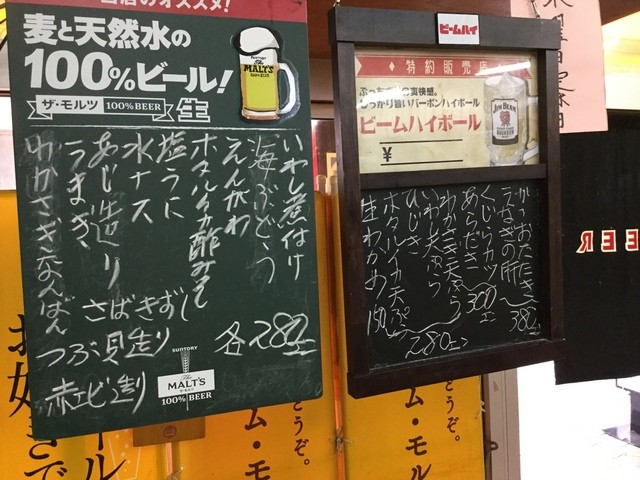 当店のオススメ!
麦と天然水の
100%ビール!
ザ・モルツ 100%BEER 生
The MALT'S
いわし煮付け
海ぶどう
えんがわ
ホタルイカ酢みそ
塩うに
水ナス
あじ造り
うまき
わかさぎなんばん
さばきずし
つぶ貝造り
赤エビ造り
各280円
SUNTORY
The
MALT'S
100% BEER
ビームハイ
特約販売店
しっかり旨いバーボンハイボール
ビームハイボール
¥
JIM BEAM
かつおたたき
うなぎの肝
380円
くじらカツ
あらだき
300円
わかさぎ天ぷら
いわし天ぷら
ひじき
ホタルイカ天ぷら
280円
生わかめ 180
BEER
どうぞ。
ム・モル
どうぞ。
ム・モル
お好きで
ール